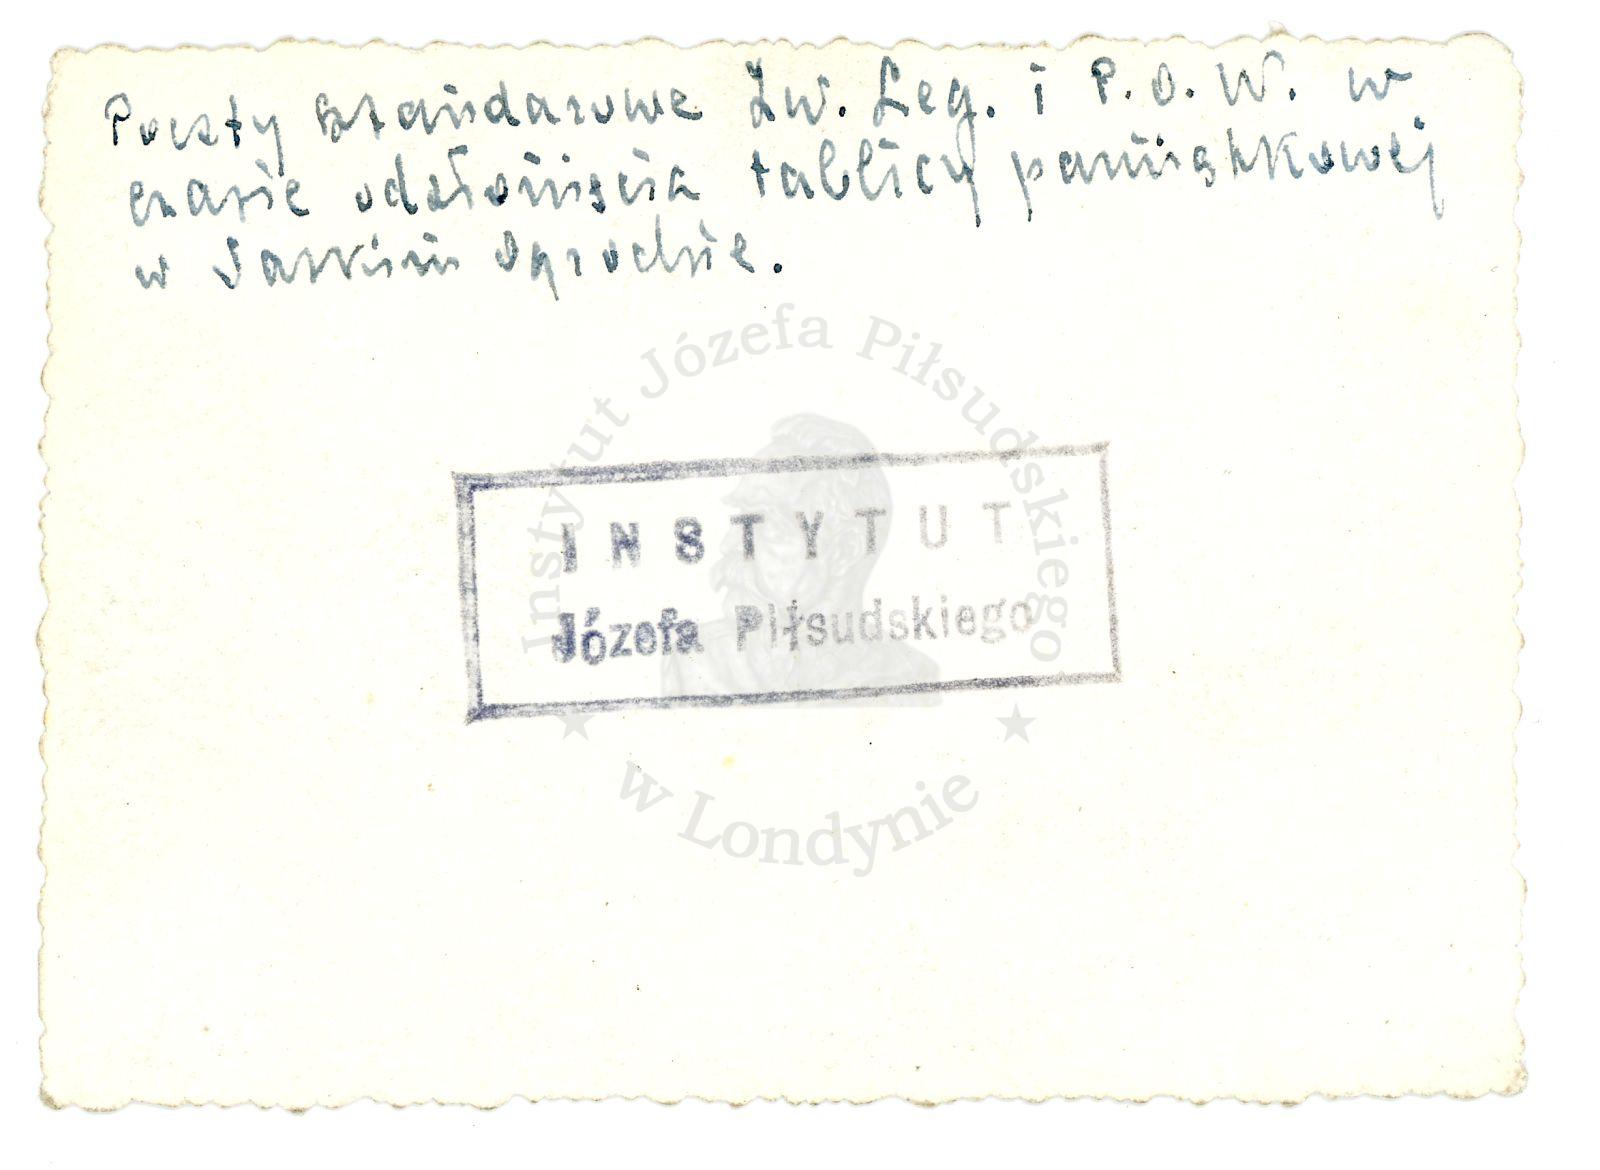 Poczty sztandarowe Zw. Leg. i P.O.W. w
czasie odsłonięcia tablicy pamiątkowej
w Saskim Ogrodzie.
INSTYTUT
Józefa Piłsudskiego
Instytut Józefa Piłsudskiego
w Londynie